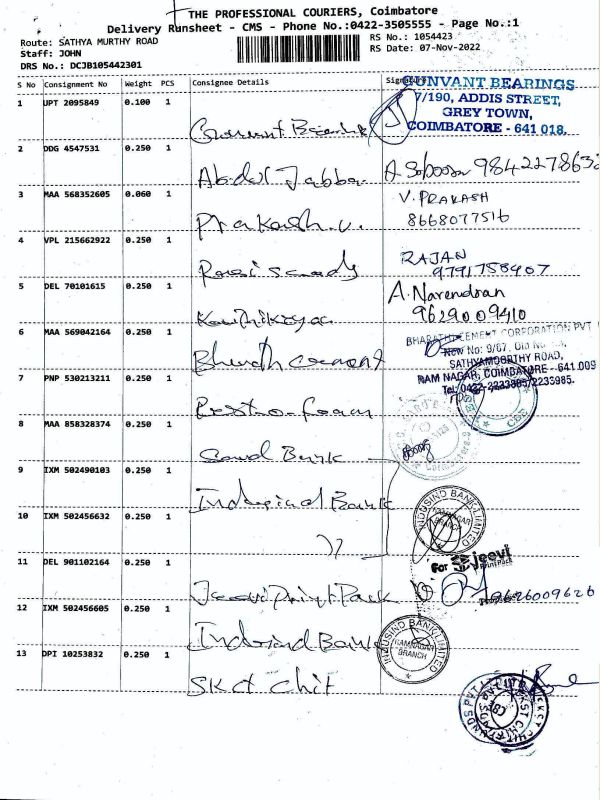 THE PROFESSIONAL COURIERS, Coimbatore
Delivery Runsheet - CMS - Phone No.:0422-3505555 - Page No.:1
Route: SATHYA MURTHY ROAD
RS No.: 1054423
Staff: JOHN
RS Date: 07-Nov-2022
DRS No.: DCJB105442301
S No Consignment No Weight PCS Consignee Details Signature
GUNVANT BEARINGS
7/190, ADDIS STREET,
GREY TOWN,
COIMBATORE - 641 018.
1 UPT 2095849 0.100 1
Gunvant Bearing
2 DDG 4547531 0.250 1
Abdul Jabbar A. Saboor 984227863
3 MAA 568352605 0.060 1
V. PRAKASH
Prakash.v. 8668077516
4 VPL 215662922 0.250 1
RAJAN
9791758407
5 DEL 70101615 0.250 1
A. Narendran
9629009410
6 MAA 569042164 0.250 1
BHARATHI CEMENT CORPORATION PVT
New No: 9/67, Old No
SATHYAMOORTHY ROAD,
RAM NAGAR, COIMBATORE - 641 009
Tel: 0422-2233885/2235985.
Bharath cement
7 PNP 530213211 0.250 1
8 MAA 858328374 0.250 1
Bank
9 IXM 502490103 0.250 1
Indusind Bank
INDUSIND BANK LIMITED
RAMNAGAR BRANCH
10 IXM 502456632 0.250 1
11 DEL 901102164 0.250 1
For jeevi
PrintPack
Jeevi Print Pack 9626009626
12 IXM 502456605 0.250 1
Indusind Bank
INDUSIND BANK LIMITED
RAMNAGAR
BRANCH
13 DPI 10253832 0.250 1
SKCT Chit
CBE